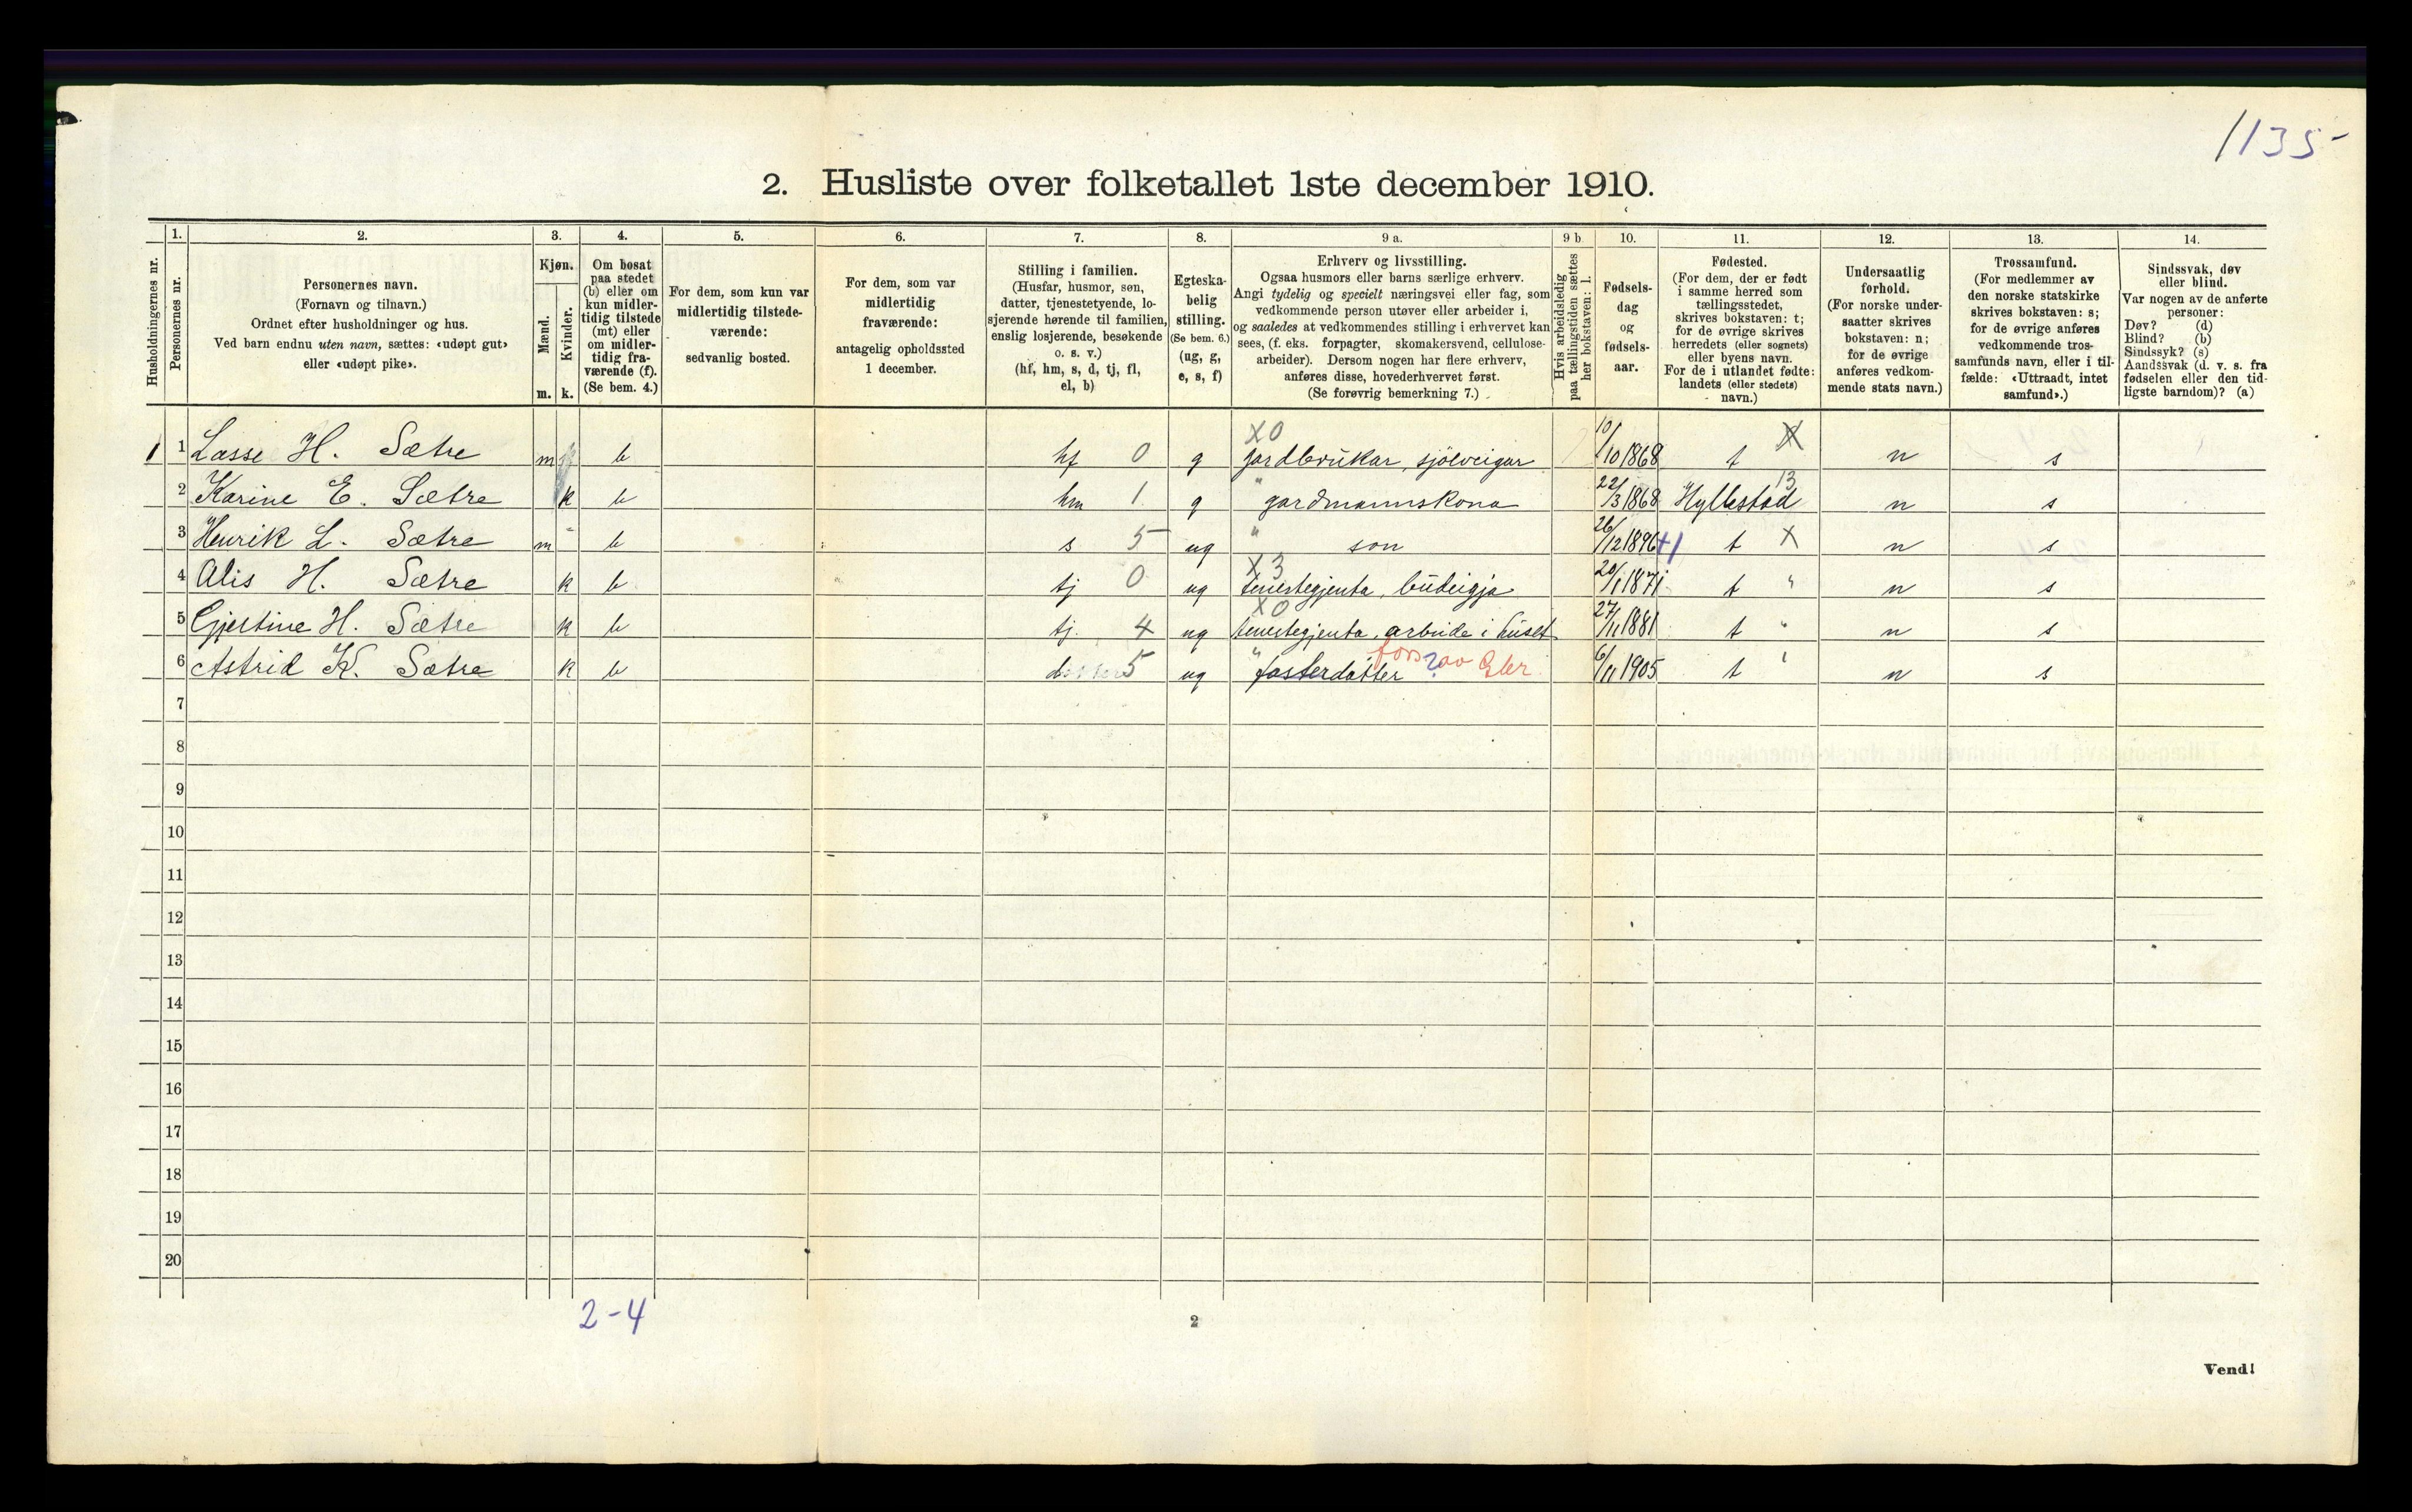 1135-
2. Husliste over folketallet 1ste december 1910.
Husholdningernes nr.
1.
Personernes nr.
2.
Personernes navn.
(Fornavn og tilnavn.)
Ordnet efter husholdninger og hus.
Ved barn endnu uten navn, sættes: «udøpt gut»
eller «udøpt pike».
3.
Kjøn.
Mænd.
Kvinder.
m. k.
4.
Om bosat
paa stedet
(b) eller om
kun midler-
tidig tilstede
(mt) eller
om midler-
tidig fra-
værende (f).
(Se bem. 4.)
5.
For dem, som kun var
midlertidig tilstede-
værende:
sedvanlig bosted.
6.
For dem, som var
midlertidig
fraværende:
antagelig opholdssted
1 december.
7.
Stilling i familien.
(Husfar, husmor, søn,
datter, tjenestetyende, lo-
sjerende hørende til familien,
enslig losjerende, besøkende
o. s. v.)
(hf, hm, s, d, tj, fl,
el, b)
8.
Egteska-
belig
stilling.
(Se bem. 6.)
(ug, g,
e, s, f)
9 a.
Erhverv og livsstilling.
Ogsaa husmors eller barns særlige erhverv.
Angi tydelig og specielt næringsvei eller fag, som
vedkommende person utøver eller arbeider i,
og saaledes at vedkommendes stilling i erhvervet kan
sees, (f. eks. forpagter, skomakersvend, cellulose-
arbeider). Dersom nogen har flere erhverv,
anføres disse, hovederhvervet først.
(Se forøvrig bemerkning 7.)
9 b
Hvis arbeidsledig
paa tællingstiden sættes
her bokstaven: l.
10.
Fødsels-
dag
og
fødsels-
aar.
11.
Fødested.
(For dem, der er født
i samme herred som
tællingsstedet,
skrives bokstaven: t;
for de øvrige skrives
herredets (eller sognets)
eller byens navn.
For de i utlandet fødte:
landets (eller stedets)
navn.)
12.
Undersaatlig
forhold.
(For norske under-
saatter skrives
bokstaven: n;
for de øvrige
anføres vedkom-
mende stats navn.)
13.
Trossamfund.
(For medlemmer av
den norske statskirke
skrives bokstaven: s;
for de øvrige anføres
vedkommende tros-
samfunds navn, eller i til-
fælde: «Uttraadt, intet
samfund».)
14.
Sindssvak, døv
eller blind.
Var nogen av de anførte
personer:
Døv? (d)
Blind? (b)
Sindssyk? (s)
Aandssvak (d. v. s. fra
fødselen eller den tid-
ligste barndom)? (a)
1 1 Lasse H. Sætre m b hf 0 g X0 gardbrukar, sjöleigar 10/10 1868 t X n s
2 Karine E. Sætre k b hm 1 g " gardmannskona 22/3 1868 Hyllestad 13 n s
3 Henrik L. Sætre m b s 5 ug " son 26/12 1896 +1 t X n s
4 Alis H. Sætre k b tj 0 ug X3 tenestegjenta, budeigja 20/1 1871 t " n s
5 Gjertine H. Sætre k b tj. 4 ug X0 tenestegjenta, arbeide i huset 27/11 1881 t " n s
6 Astrid K. Sætre k b d 5 ug " fosterdotter fors ? av 6/11 1905 t " n s
7
8
9
10
11
12
13
14
15
16
17
18
19
20
2-4
2
Vend!